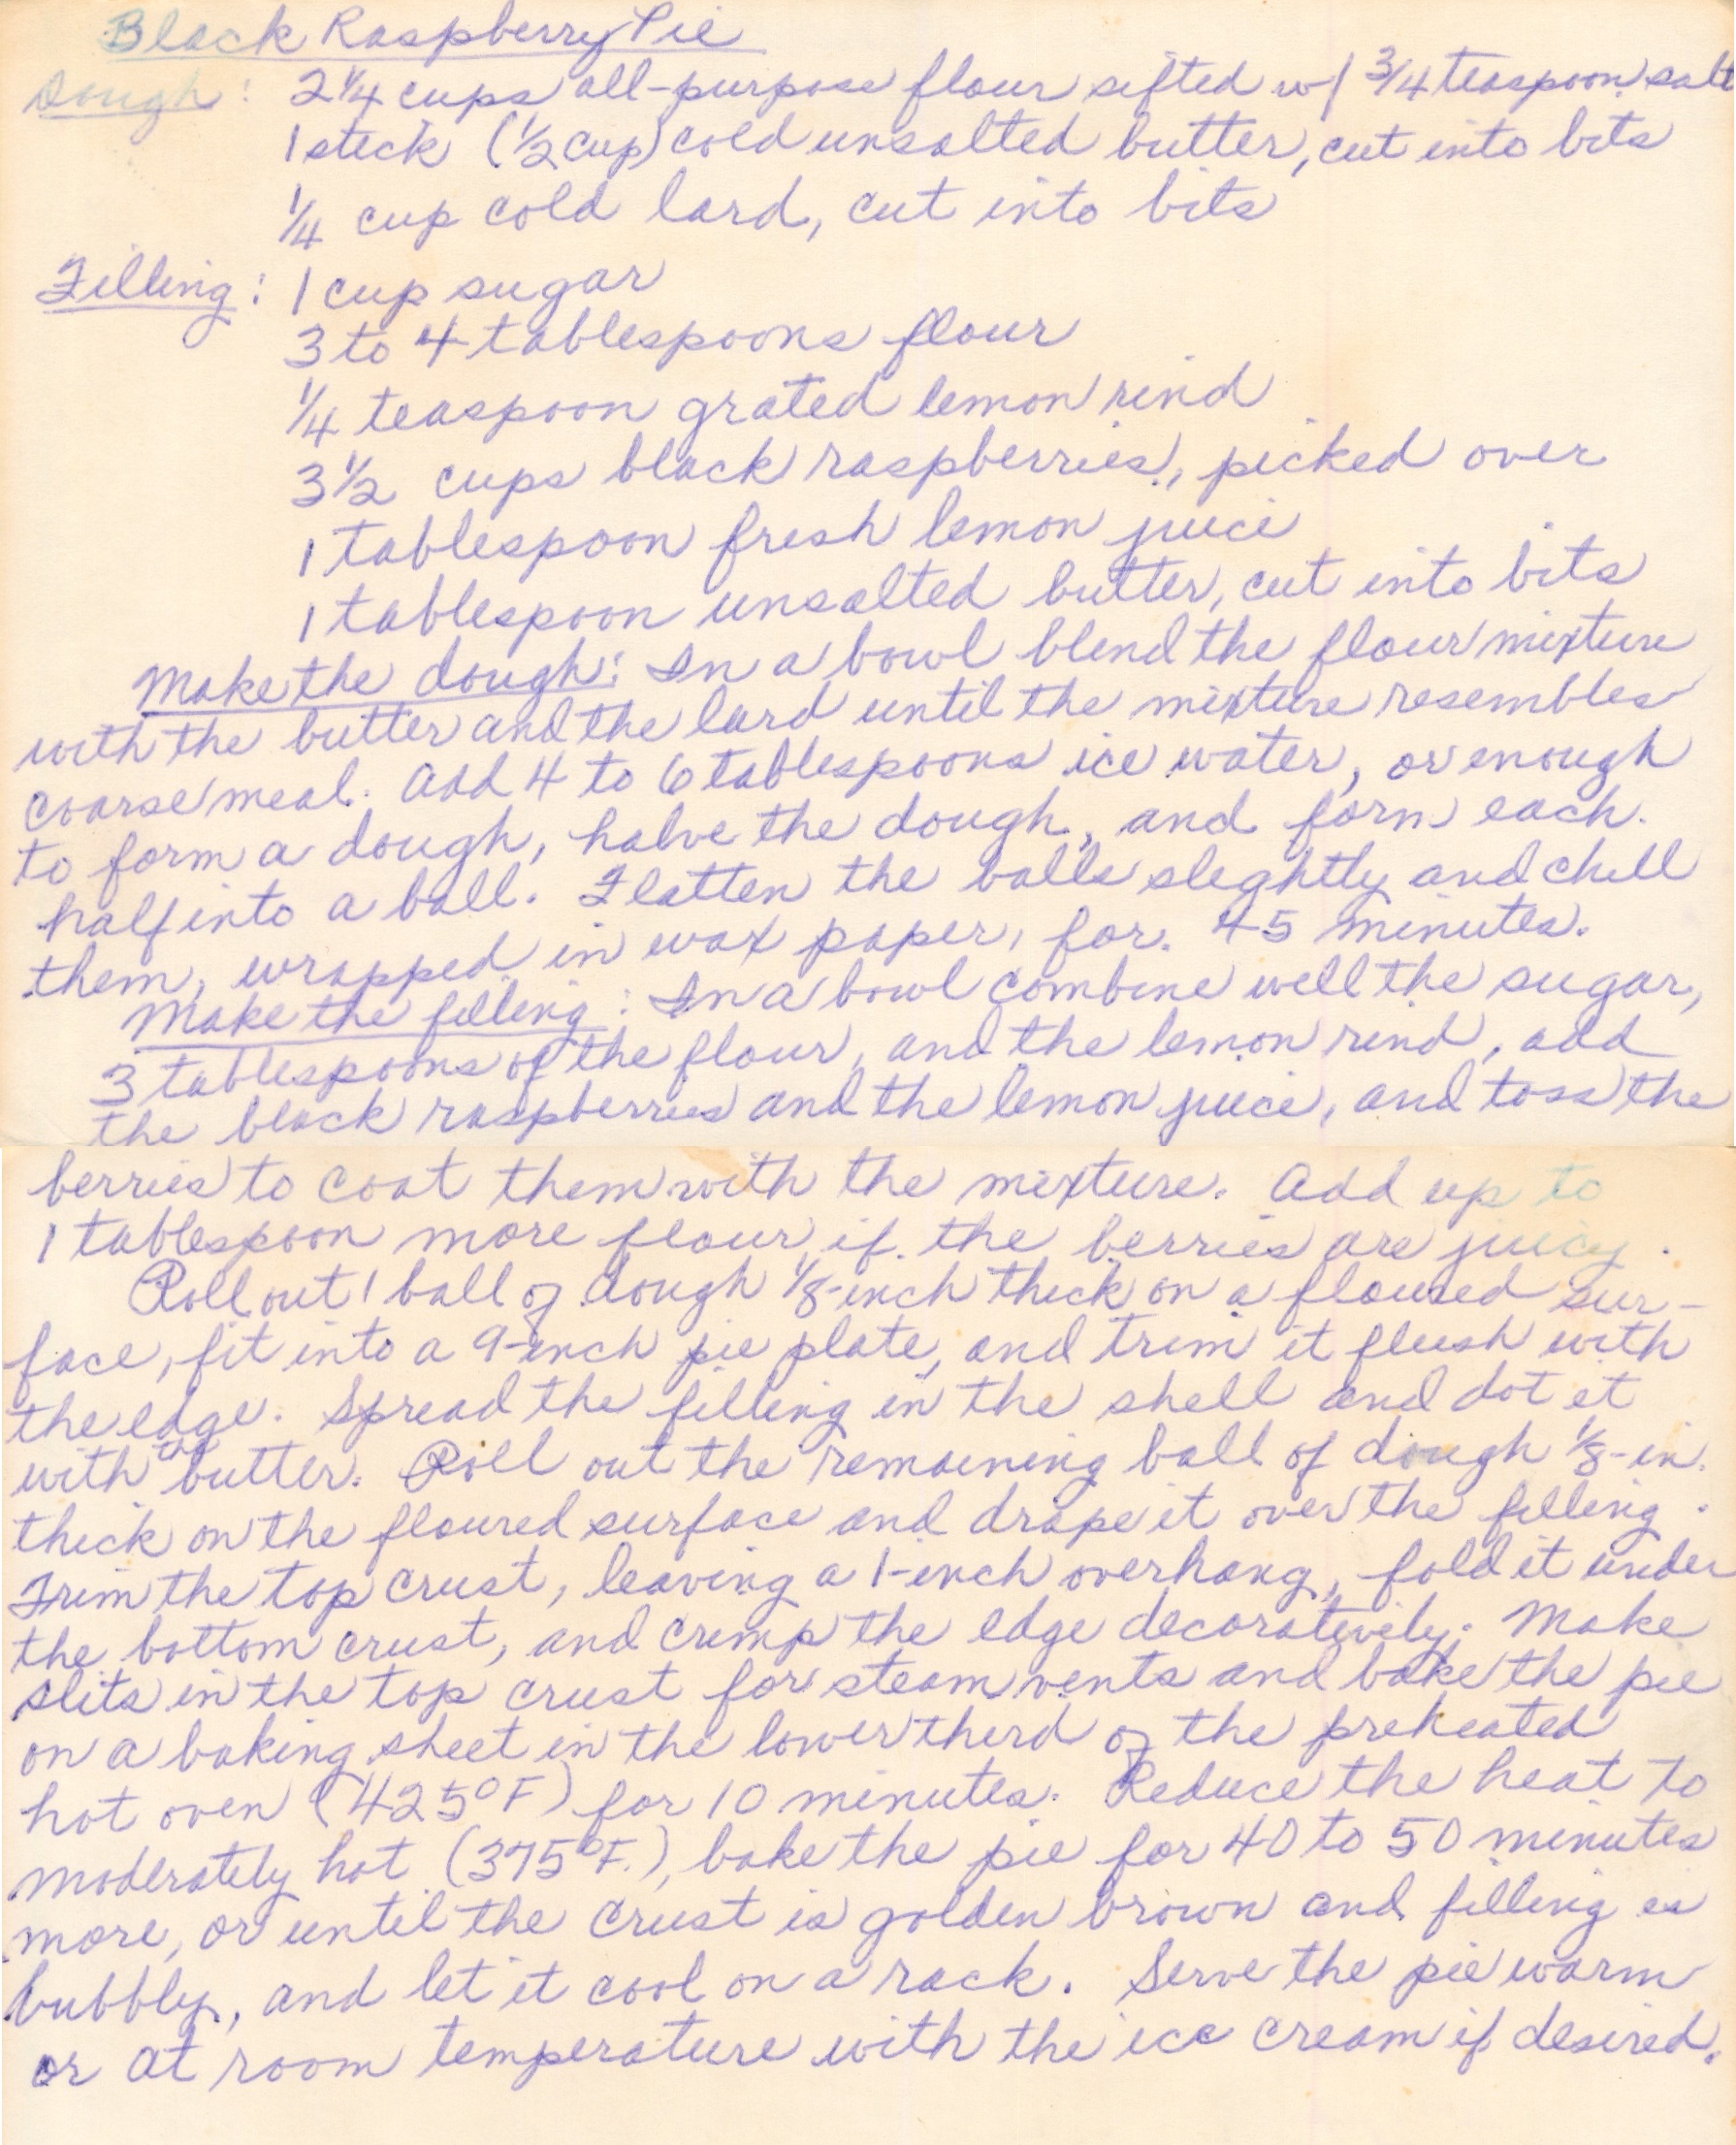 Black Raspberry Pie
Dough: 2 1/4 cups all-purpose flour sifted w/ 3/4 teaspoon salt
1 stick (1/2 cup) cold unsalted butter, cut into bits
1/4 cup cold lard, cut into bits
Filling: 1 cup sugar
3 to 4 tablespoons flour
1/4 teaspoon grated lemon rind
3 1/2 cups black raspberries, picked over
1 tablespoon fresh lemon juice
1 tablespoon unsalted butter, cut into bits
Make the dough: In a bowl blend the flour mixture
with the butter and the lard until the mixture resembles
coarse meal. Add 4 to 6 tablespoons ice water, or enough
to form a dough, halve the dough, and form each
half into a ball. Flatten the balls slightly and chill
them, wrapped in wax paper, for 45 minutes.
Make the filling: In a bowl combine well the sugar,
3 tablespoons of the flour, and the lemon rind, add
the black raspberries and the lemon juice, and toss the
berries to coat them with the mixture. Add up to
1 tablespoon more flour if the berries are juicy.
Roll out 1 ball of dough 1/8-inch thick on a floured sur-
face, fit into a 9-inch pie plate, and trim it flush with
the edge. Spread the filling in the shell and dot it
with the butter. Roll out the remaining ball of dough 1/8-in.
thick on the floured surface and drape it over the filling.
Trim the top crust, leaving a 1-inch overhang, fold it under
the bottom crust, and crimp the edge decoratively. Make
slits in the top crust for steam vents and bake the pie
on a baking sheet in the lower third of the preheated
hot oven (425°F) for 10 minutes. Reduce the heat to
moderately hot (375°F.), bake the pie for 40 to 50 minutes
more, or until the crust is golden brown and filling is
bubbly, and let it cool on a rack. Serve the pie warm
or at room temperature with the ice cream if desired.